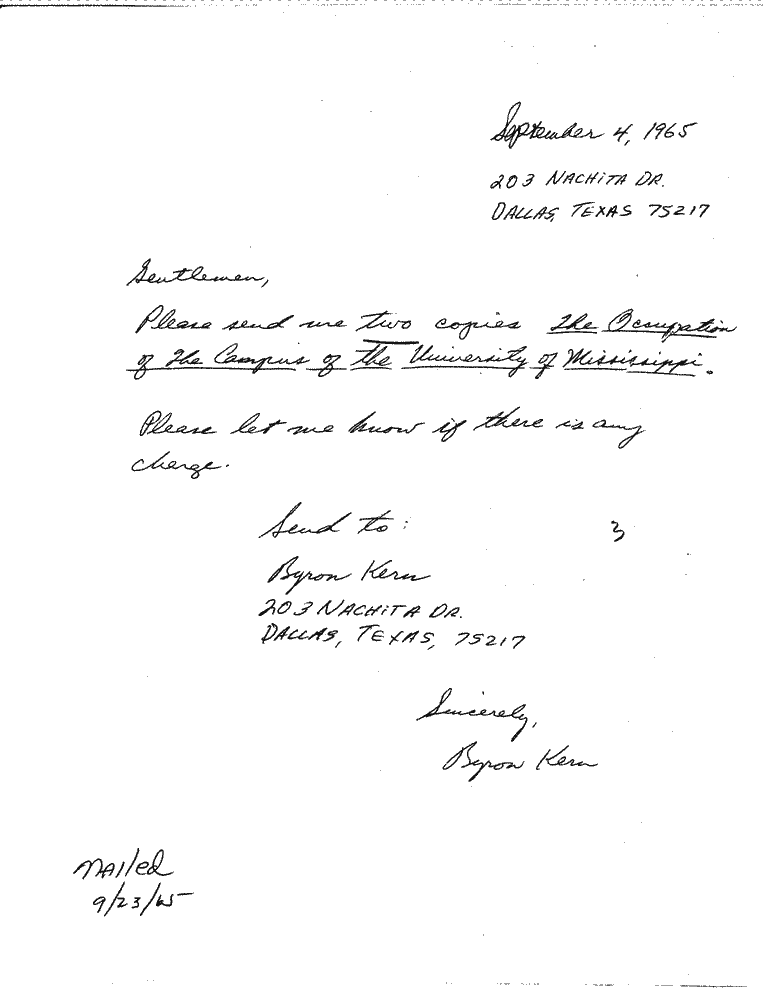 September 4, 1965
203 NACHITA DR.
DALLAS, TEXAS 75217
Gentlemen,
Please send me two copies The Occupation
of The Campus of the University of Mississippi.
Please let me know if there is any
charge.
Send to:
3
Byron Kern
203 NACHITA DR.
DALLAS, TEXAS, 75217
Sincerely,
Byron Kern
Mailed
9/23/65